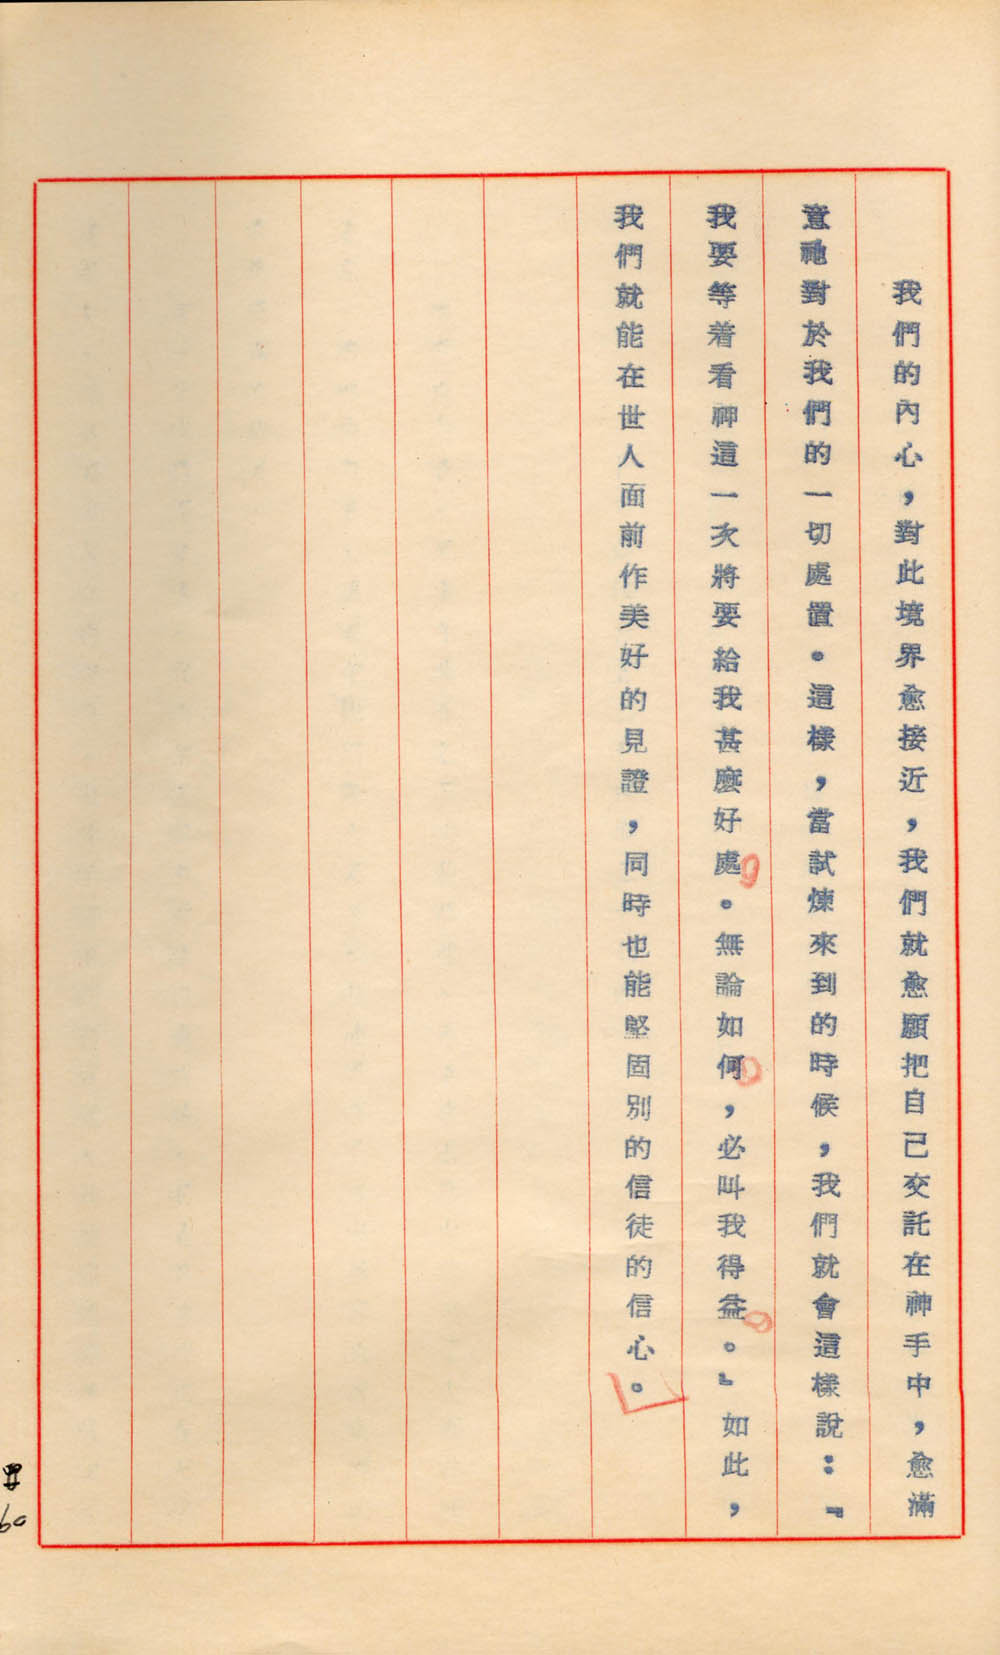 我們的內心，對此境界愈接近，我們就愈願把自己交託在神手中，愈滿
意祂對於我們的一切處置。這樣，當試煉來到的時候，我們就會這樣說：『
我要等着看神這一次將要給我甚麼好處。無論如何，必叫我得益。』如此，
我們就能在世人面前作美好的見證，同時也能堅固別的信徒的信心。